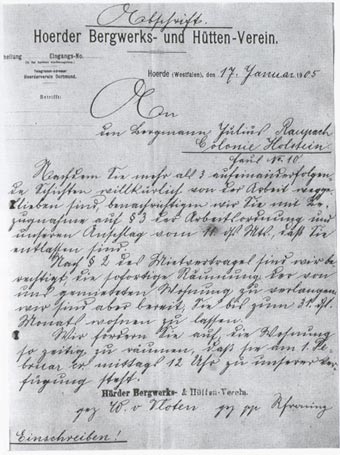 Abschrift.
Hoerder Bergwerks- und Hütten-Verein.
Eingangs-No.
Telegramm-Adresse:
Hoerderverein Dortmund.
Hoerde (Westfalen), den 17. Januar 1905
Betrifft:
An
den Bergmann Julius Raupach
Colonie Holstein
Haus Nr. 10
Nachdem Sie mehr als 3 aufeinanderfolgen-
de Schichten willkürlich von der Arbeit wegge-
blieben sind benachrichtigen wir Sie mit Be-
zugnahme auf § 3 der Arbeitsordnung und
unseren Anschlag vom 11 ds Mts. daß Sie
entlassen sind.
Nach § 2 des Mietvertrages sind wir be-
rechtigt, die sofortige Räumung der von
uns gemieteten Wohnung zu verlangen
wir sind aber bereit, Sie bis zum 31. ds.
Monats wohnen zu lassen.
Wir fordern Sie auf, die Wohnung
so zeitig zu räumen, daß sie am 1. Fe-
bruar er mittags 12 Uhr zu unserer Ver-
fügung steht.
Hörder Bergwerks- & Hütten-Verein.
gez W. v Vloten gez pp
Einschreiben!